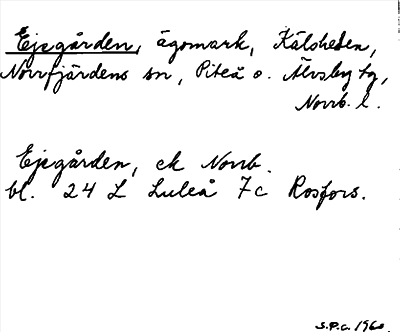 Ejegården, ägomark, Kälsheden,
Norrfjärdens sn, Piteå o. Älvsby tg,
Norrb. l.
Ejegården, ek Norrb.
bl. 24 L Luleå 7c Rosfors.
S.P.G. 1960.